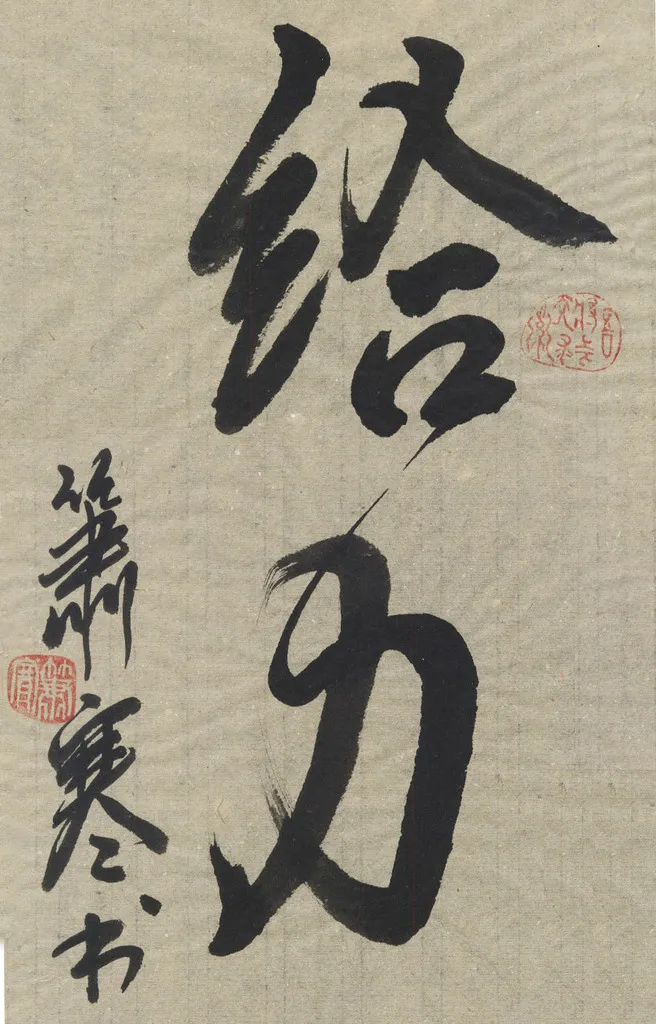 给力
簫寒书